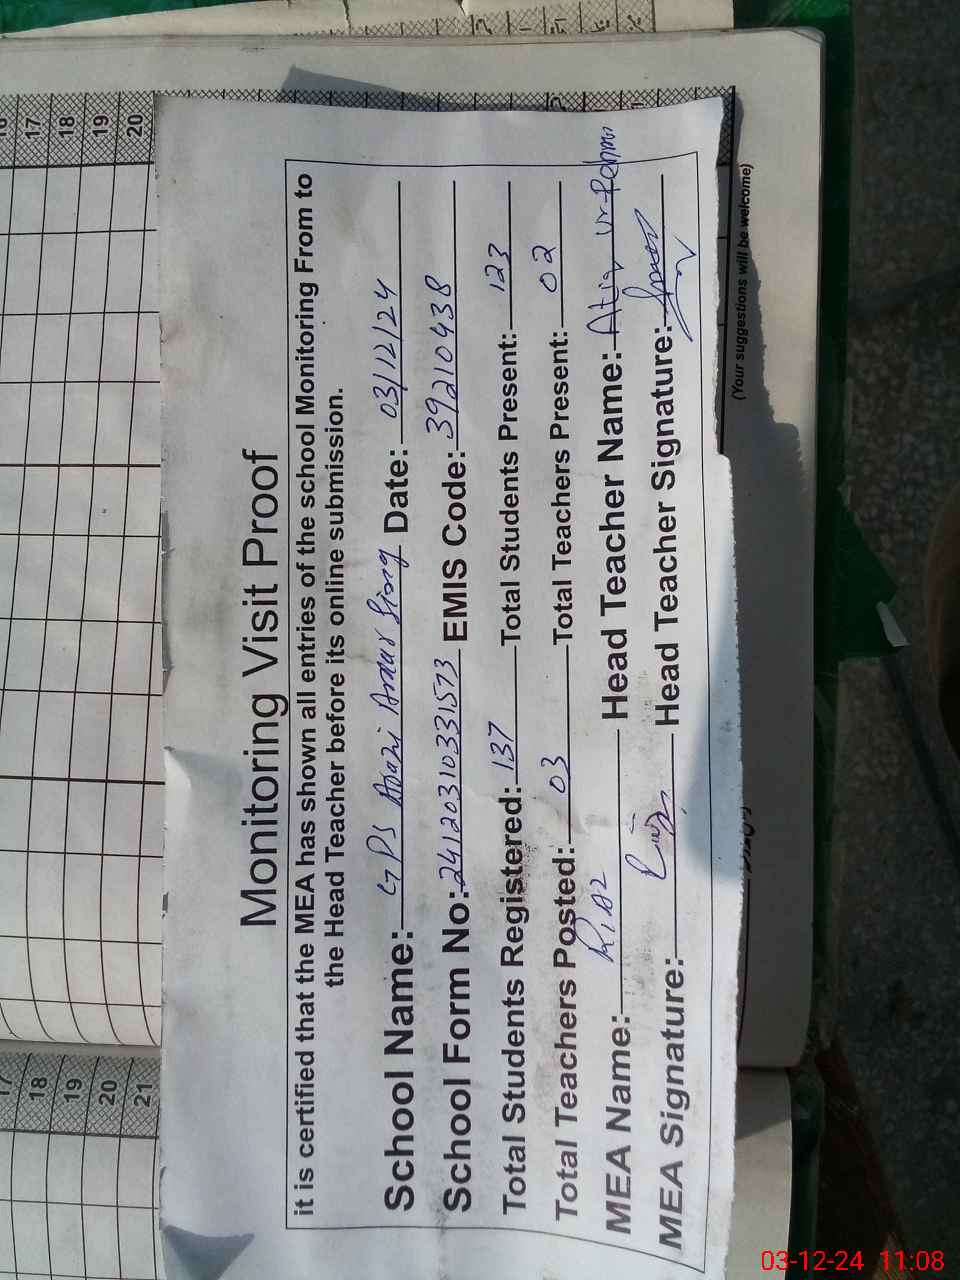 Monitoring Visit Proof
it is certified that the MEA has shown all entries of the school Monitoring From to
the Head Teacher before its online submission.
School Name: GPS Date: 03/12/24
School Form No: 24120310331573 EMIS Code: 39210438
Total Students Registered: 137 Total Students Present: 123
Total Teachers Posted: 03 Total Teachers Present: 02
MEA Name: Riaz Head Teacher Name: Atiq ur Rehman
MEA Signature: Head Teacher Signature:
(Your suggestions will be welcome)
17
18
19
20
17
18
19
20
21
03-12-24 11:08